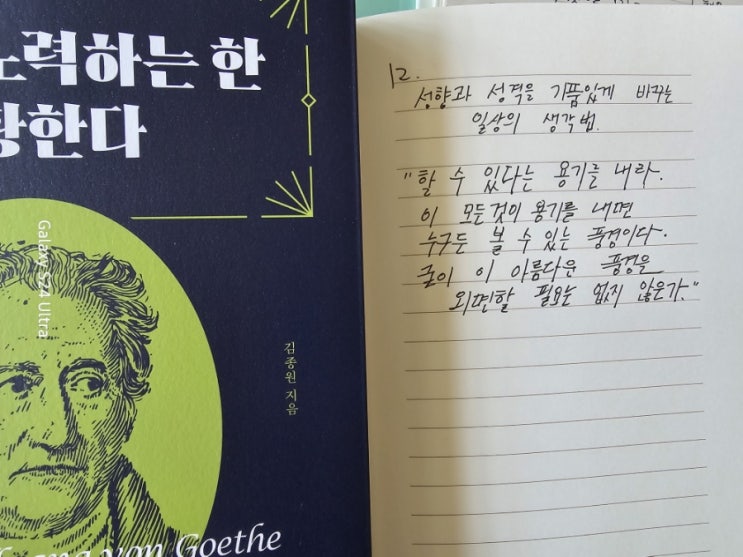 노력하는 한
황한다
Galaxy S24 Ultra
김종원 지음
von Goethe
12.
성향과 성격을 기품있게 바꾸는
일상의 생각법.
"할 수 있다는 용기를 내라.
이 모든것이 용기를 내면
누구든 볼 수 있는 풍경이다.
굳이 이 아름다운 풍경을
외면할 필요는 없지 않은가."